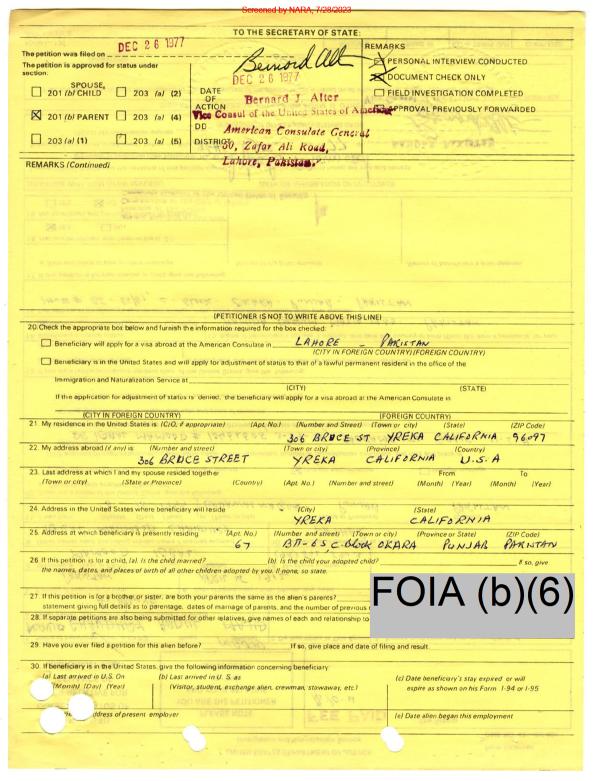 Screened by NARA, 7/28/2023
TO THE SECRETARY OF STATE:
The petition was filed on DEC 26 1977
The petition is approved for status under section:
SPOUSE,
201 (b) CHILD 203 (a) (2)
201 (b) PARENT 203 (a) (4)
203 (a) (1) 203 (a) (5)
DATE OF ACTION
DD
DISTRICT
DEC 26 1977
Bernard J. Alter
Vice Consul of the United States of America
American Consulate General
30, Zafar Ali Road,
Lahore, Pakistan.
REMARKS
PERSONAL INTERVIEW CONDUCTED
DOCUMENT CHECK ONLY
FIELD INVESTIGATION COMPLETED
APPROVAL PREVIOUSLY FORWARDED
REMARKS (Continued)
(PETITIONER IS NOT TO WRITE ABOVE THIS LINE)
20. Check the appropriate box below and furnish the information required for the box checked:
Beneficiary will apply for a visa abroad at the American Consulate in LAHORE - PAKISTAN
(CITY IN FOREIGN COUNTRY) (FOREIGN COUNTRY)
Beneficiary is in the United States and will apply for adjustment of status to that of a lawful permanent resident in the office of the
Immigration and Naturalization Service at
(CITY) (STATE)
If the application for adjustment of status is denied, the beneficiary will apply for a visa abroad at the American Consulate in
(CITY IN FOREIGN COUNTRY) (FOREIGN COUNTRY)
21. My residence in the United States is: (C/O, if appropriate) (Apt. No.) (Number and Street) (Town or city) (State) (ZIP Code)
306 BRUCE ST YREKA CALIFORNIA 96097
22. My address abroad (if any) is: (Number and Street) (Town or city) (Province) (Country)
306 BRUCE STREET YREKA CALIFORNIA U.S.A
23. Last address at which I and my spouse resided together From To
(Town or city) (State or Province) (Country) (Apt. No.) (Number and Street) (Month) (Year) (Month) (Year)
24. Address in the United States where beneficiary will reside (City) (State)
YREKA CALIFORNIA
25. Address at which beneficiary is presently residing (Apt. No.) (Number and street) (Town or city) (Province or State) (ZIP Code)
67 BII-65 C-Block OKARA PUNJAB PAKISTAN
26. If this petition is for a child, (a). Is the child married? (b). Is the child your adopted child? If so, give
the names, dates, and places of birth of all other children adopted by you. If none, so state.
27. If this petition is for a brother or sister, are both your parents the same as the alien's parents?
statement giving full details as to parentage, dates of marriage of parents, and the number of previous
28. If separate petitions are also being submitted for other relatives, give names of each and relationship to
FOIA (b)(6)
29. Have you ever filed a petition for this alien before? If so, give place and date of filing and result.
30. If beneficiary is in the United States, give the following information concerning beneficiary:
(a) Last arrived in U.S. On (b) Last arrived in U.S. as (c) Date beneficiary's stay expired or will
(Month) (Day) (Year) (Visitor, student, exchange alien, crewman, stowaway, etc.) expire as shown on his Form I-94 or I-95
address of present employer (e) Date alien began this employment